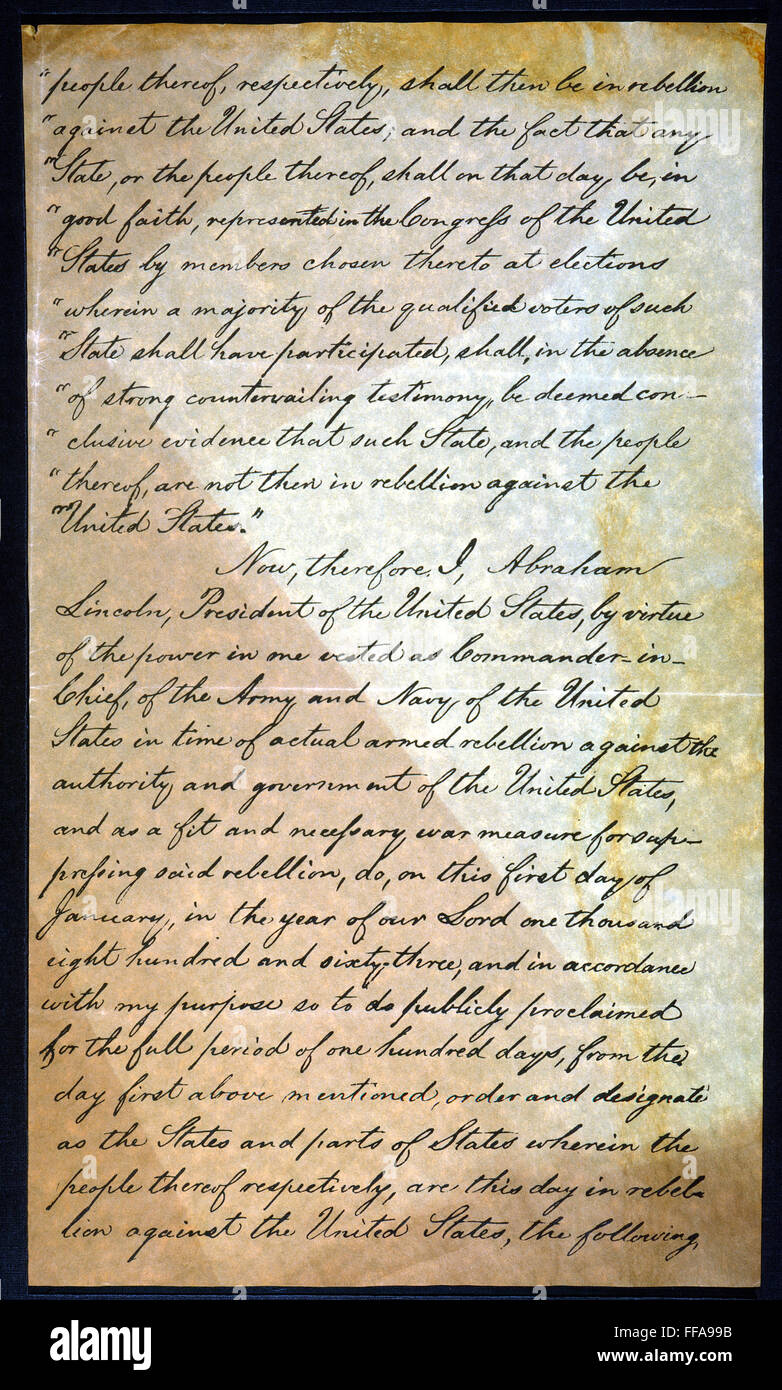 "people thereof, respectively, shall then be in rebellion
"against the United States; and the fact that any
"State, or the people thereof, shall on that day be, in
"good faith, represented in the Congress of the United
"States by members chosen thereto at elections
"wherein a majority of the qualified voters of such
"State shall have participated, shall, in the absence
"of strong countervailing testimony, be deemed con-
"clusive evidence that such State, and the people
"thereof, are not then in rebellion against the
"United States."
Now, therefore I, Abraham
Lincoln, President of the United States, by virtue
of the power in me vested as Commander-in-
Chief, of the Army and Navy of the United
States in time of actual armed rebellion against the
authority and government of the United States,
and as a fit and necessary war measure for sup-
pressing said rebellion, do, on this first day of
January, in the year of our Lord one thousand
eight hundred and sixty-three, and in accordance
with my purpose so to do publicly proclaimed
for the full period of one hundred days, from the
day first above mentioned, order and designate
as the States and parts of States wherein the
people thereof respectively, are this day in rebel-
lion against the United States, the following,
alamy
alamy
a
a
a
alamy
Image ID: FFA99B
www.alamy.com